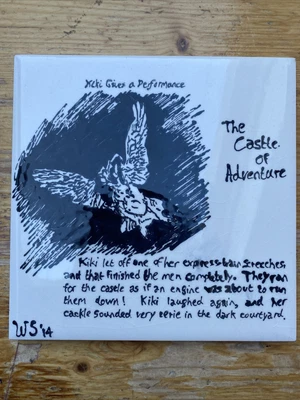 Kiki Gives a Performance
The
Castle
of
Adventure
Kiki let off one of her express-train screeches,
and that finished the men completely. They ran
for the castle as if an engine was about to run
them down! Kiki laughed again, and her
cackle sounded very eerie in the dark courtyard.
WS '14